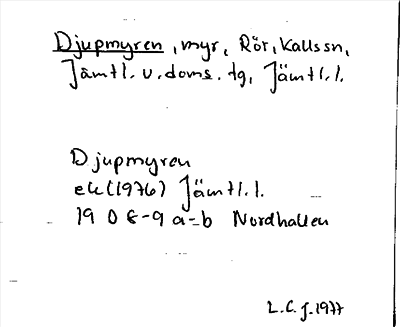 Djupmyren, myr, Rör, Kallssn,
Jämtl. v. doms. tg, Jämtl. l.
Djupmyren
ek (1976) Jämtl. l.
19 D 8-9 a-b Nordhallen
L.C.J. 1977